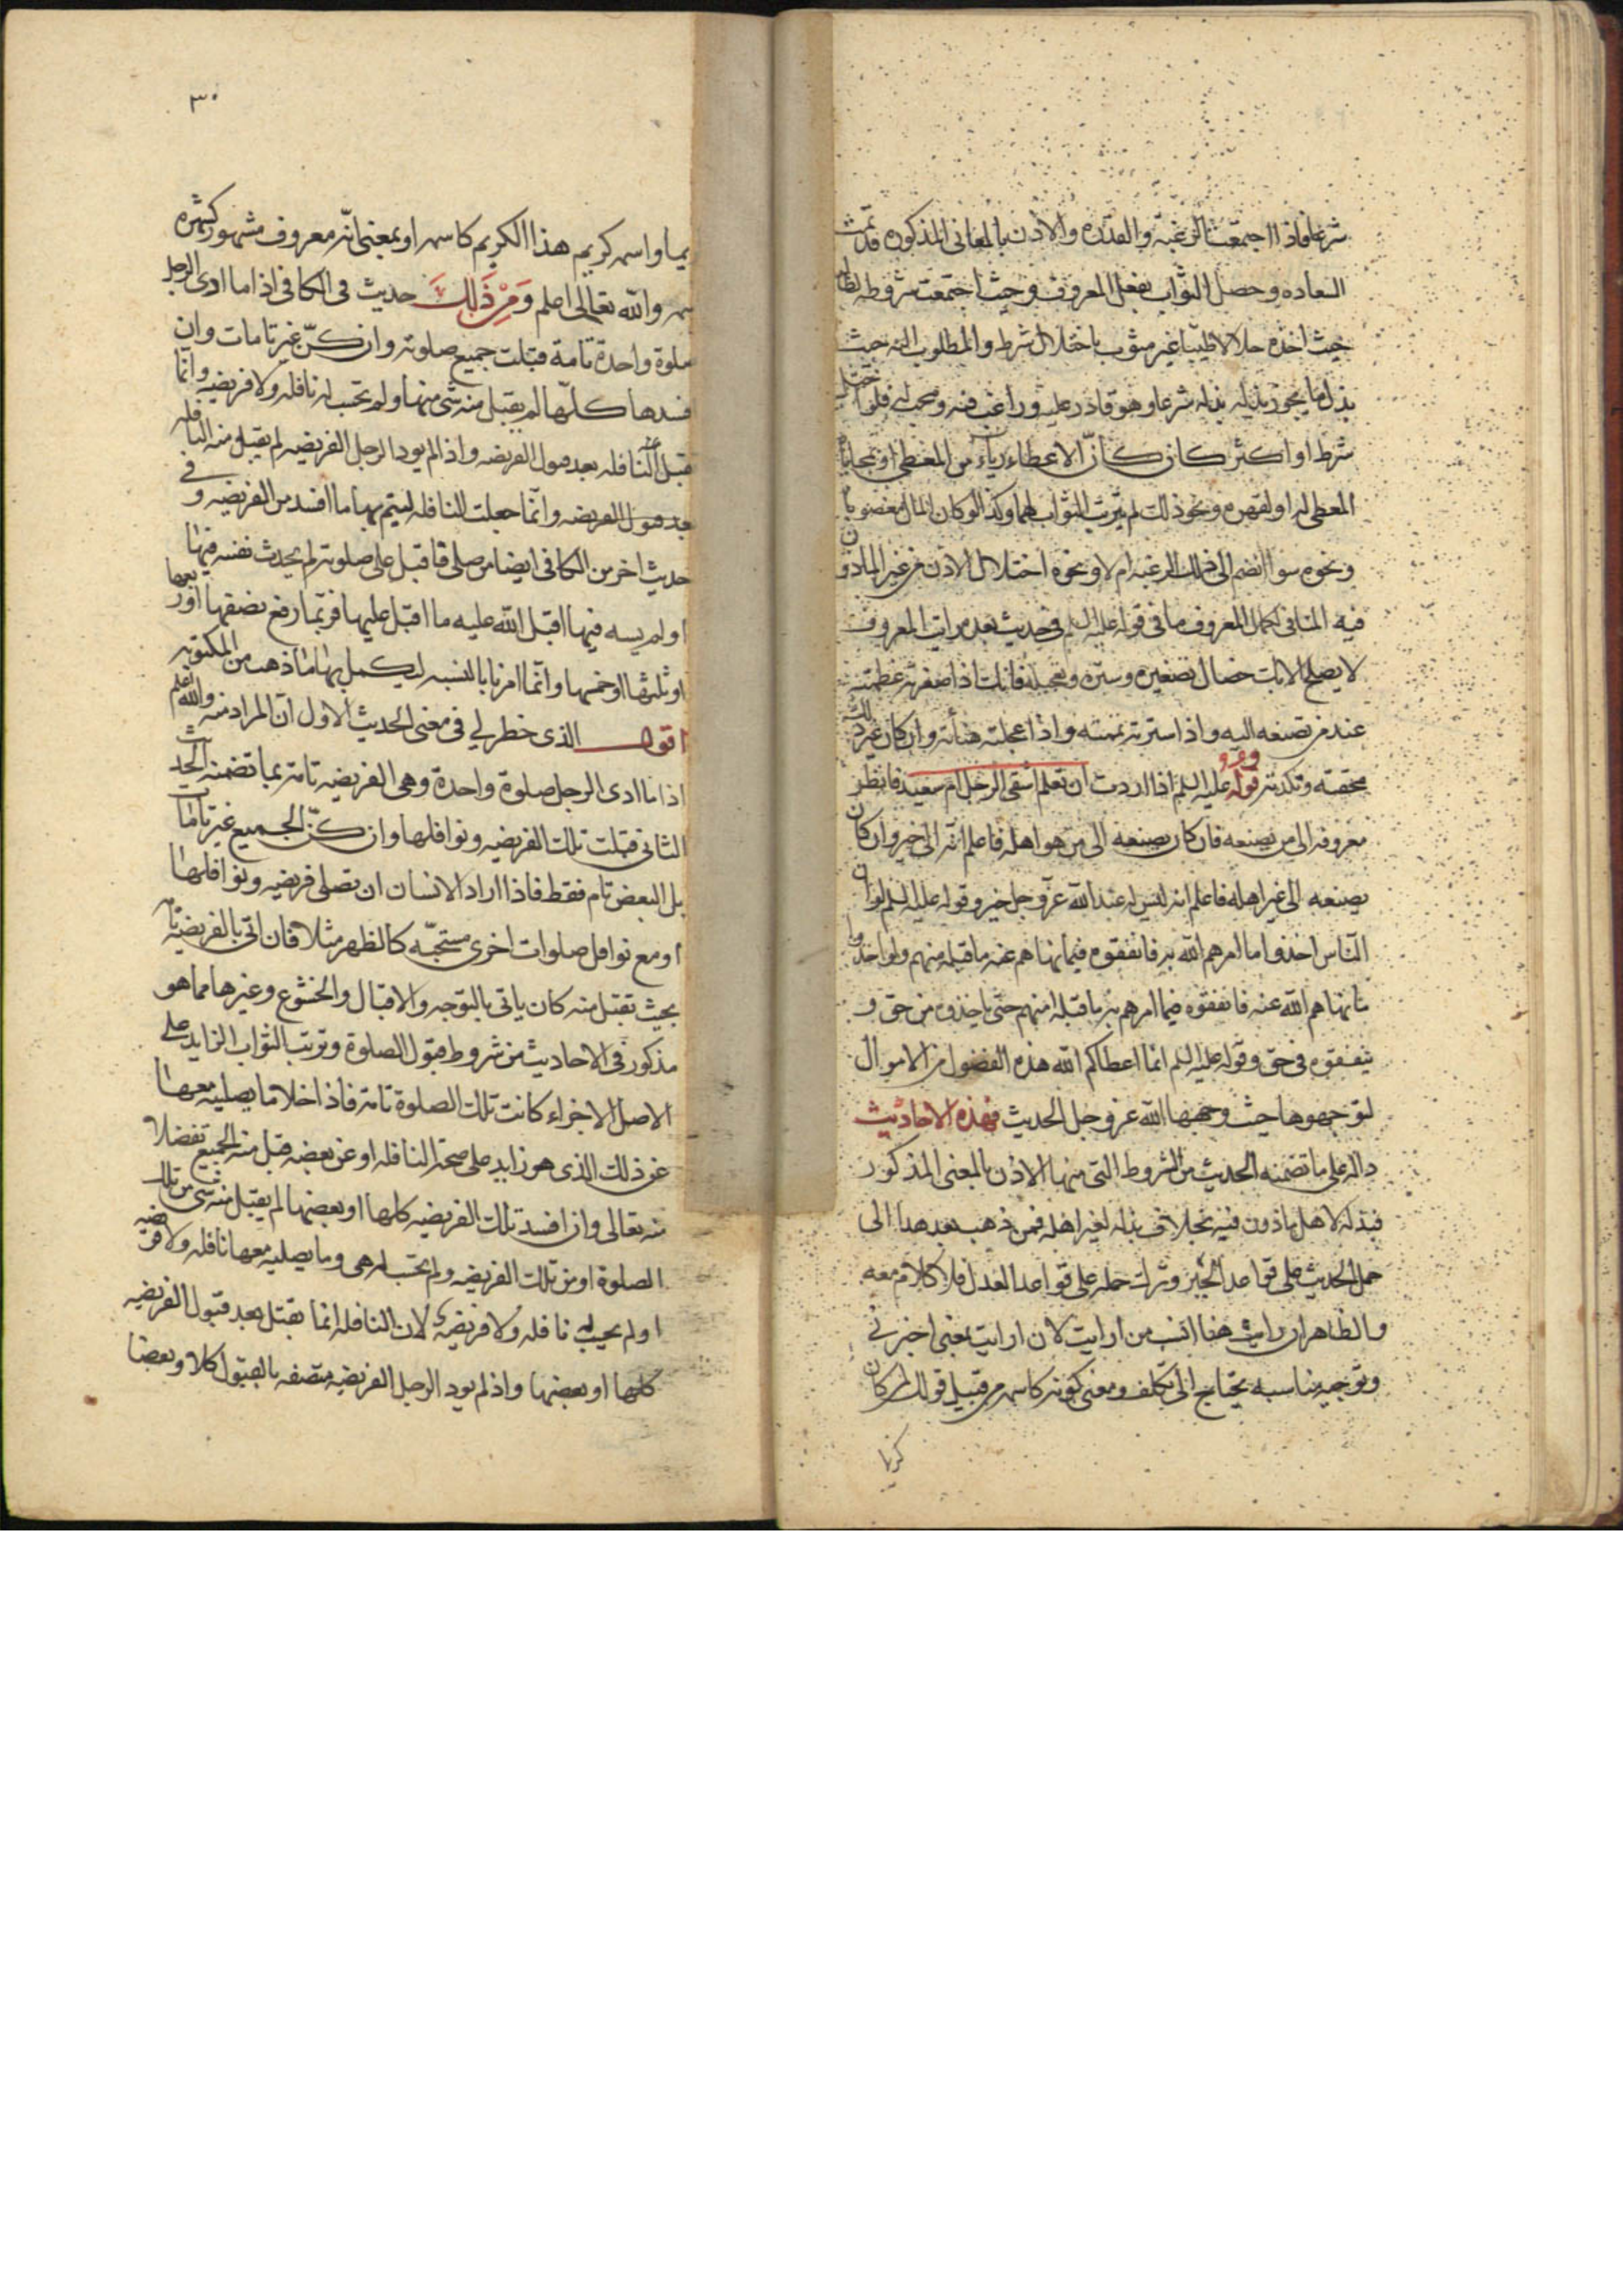 شرعا فاذا اجتمعت الرغبة والقدرة والاذن بالمعانى المذكوره قد تمت
السعاده وحصل الثواب بفعل المعروف وحيث اجتمعت شروطه
حيث اخذه حلالا طيبا غير مشوب باختلال شرط والمطلوب اليه حيث
بذل ما يجوز بذله شرعا وهو قادر عليه وراغب فيه ومحب له فلو اختل
شرط او اكثر كان كأن الاعطاء رياء من المعطى او
المعطى له او لقهره ونحو ذلك لم يترتب الثواب لهما وكذا لو كان المال مغصوبا
ونحوه سوا انضم الى ذلك الرغبه ام لا ونحوه اختلال الاذن من غير الماذون
فيه المنافى لكمال المعروف ما فى قوله عليه السلم فى حديث بعد مراتب المعروف
لا يصلح الا بثلث خصال تصغيره وستره وتعجيله فانك اذا صغرته عظمته
عند من تصنعه اليه واذا سترته تممته واذا عجلته هنأته وان كان غير ذلك
محقته ونكدته وقوله عليه السلم اذا اردت ان تعلم اشقى الرجل ام سعيد فانظر
معروفه الى من يصنعه فان كان يصنعه الى من هو اهله فاعلم انه الى خير وان كان
يصنعه الى غير اهله فاعلم انه ليس له عند الله عز وجل خير وقوله عليه السلم لو ان
الناس اخذوا ما امرهم الله به فانفقوه فيما نهاهم عنه ما قبله منهم ولو اخذوا
ما نهاهم الله عنه فانفقوه فيما امرهم به ما قبله منهم حتى ياخذوه من حق و
ينفقوه فى حق وقوله عليه السلم انما اعطاكم الله هذه الفضول من الاموال
لتوجهوها حيث وجهها الله عز وجل الحديث فهذه الاحاديث
داله على ما تضمنه الحديث من الشروط التى منها الاذن بالمعنى المذكور
فبذله لاهل ماذون فيه بخلاف بذله لغير اهله فمن ذهب بعد هذا الى
حمل الحديث على قواعد الجبر وترك حمله على قواعد العدل فلا كلام معه
والظاهر ان رايت هنا انسب من ارايت لان ارايت بمعنى اخبرنى
وتوجيه مناسبه يحتاج الى تكلف ومعنى كونه كاسمه من قبيل قولك لمن كان
كريما
٣٠
يما واسمه كريم هذا الكريم كاسمه او بمعنى انه معروف مشهور كشهره
سمه والله تعالى اعلم ومن ذلك حديث فى الكافى اذا ما ادى الرجل
صلوة واحدة تامة قبلت جميع صلوته وان كن غير تامات وان
فسدها كلها لم يقبل منه شى منها ولم تحسب له نافله ولا فريضه وانما
تقبل النافله بعد قبول الفريضه واذا لم يود الرجل الفريضه لم يقبل منه النافله
بعد قبول الفريضه وانما جعلت النافله ليتم بها ما افسد من الفريضه وفى
حديث اخر من الكافى ايضا من صلى فاقبل على صلوته لم يحدث نفسه فيها
او لم يسه فيها اقبل الله عليه ما اقبل عليها فربما رفع نصفها او ربعها
او ثلثها او خمسها وانما امرنا بالنسبه ليكمل بها ما ذهب من المكتوبه
اقول الذى خطر لي فى معنى الحديث الاول ان المراد منه والله اعلم
اذا ما ادى الرجل صلوة واحدة وهى الفريضه تامة بما تضمنه الحديث
الثانى قبلت تلك الفريضه ونوافلها وان كن الجميع غير تامات
بل البعض تام فقط فاذا اراد الانسان ان تصلى فريضه ونوافلها
او مع نوافل صلوات اخرى مستحبه كالظهر مثلا فان اتى بالفريضة تامه
بحيث تقبل منه كان ياتى بالتوجه والاقبال والخشوع وغيرها مما هو
مذكور فى الاحاديث من شروط قبول الصلوة وترتب الثواب الزايد على
الاصل الاجزاء كانت تلك الصلوة تامة فاذا اخلا ما يصليه معها
عن ذلك الذى هو زايد على صحة النافله او عن بعضه قبل منه الجميع تفضلا
منه تعالى وان افسد تلك الفريضه كلها او بعضها لم يقبل منه شى من تلك
الصلوة او من تلك الفريضه ولم تحسب له هى وما يصليه معها نافله ولا فريضه
او لم يحسب له نافله ولا فريضه لان النافله انما يقبل بعد قبول الفريضه
كلها او بعضها واذ لم يود الرجل الفريضه متصفه بالقبول كلا وبعضا